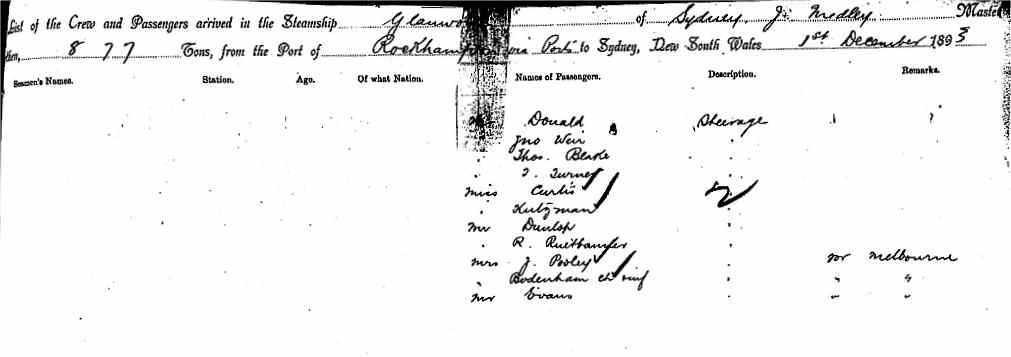 List of the Crew and Passengers arrived in the Steamship of Sydney J. Medley Master
8 77 Tons, from the Port of Rockhampton via Ports to Sydney, New South Wales 1st December 1893
Seamen's Names. Station. Age. Of what Nation. Names of Passengers. Description. Remarks.
Donald Steerage
Jno Weir
Thos. Beake
T. Turner
Miss Curtis
Kutzman
Mr Dunlop
R.
Mrs J. Pooley for Melbourne
Bodenham "
Mr Evans " "